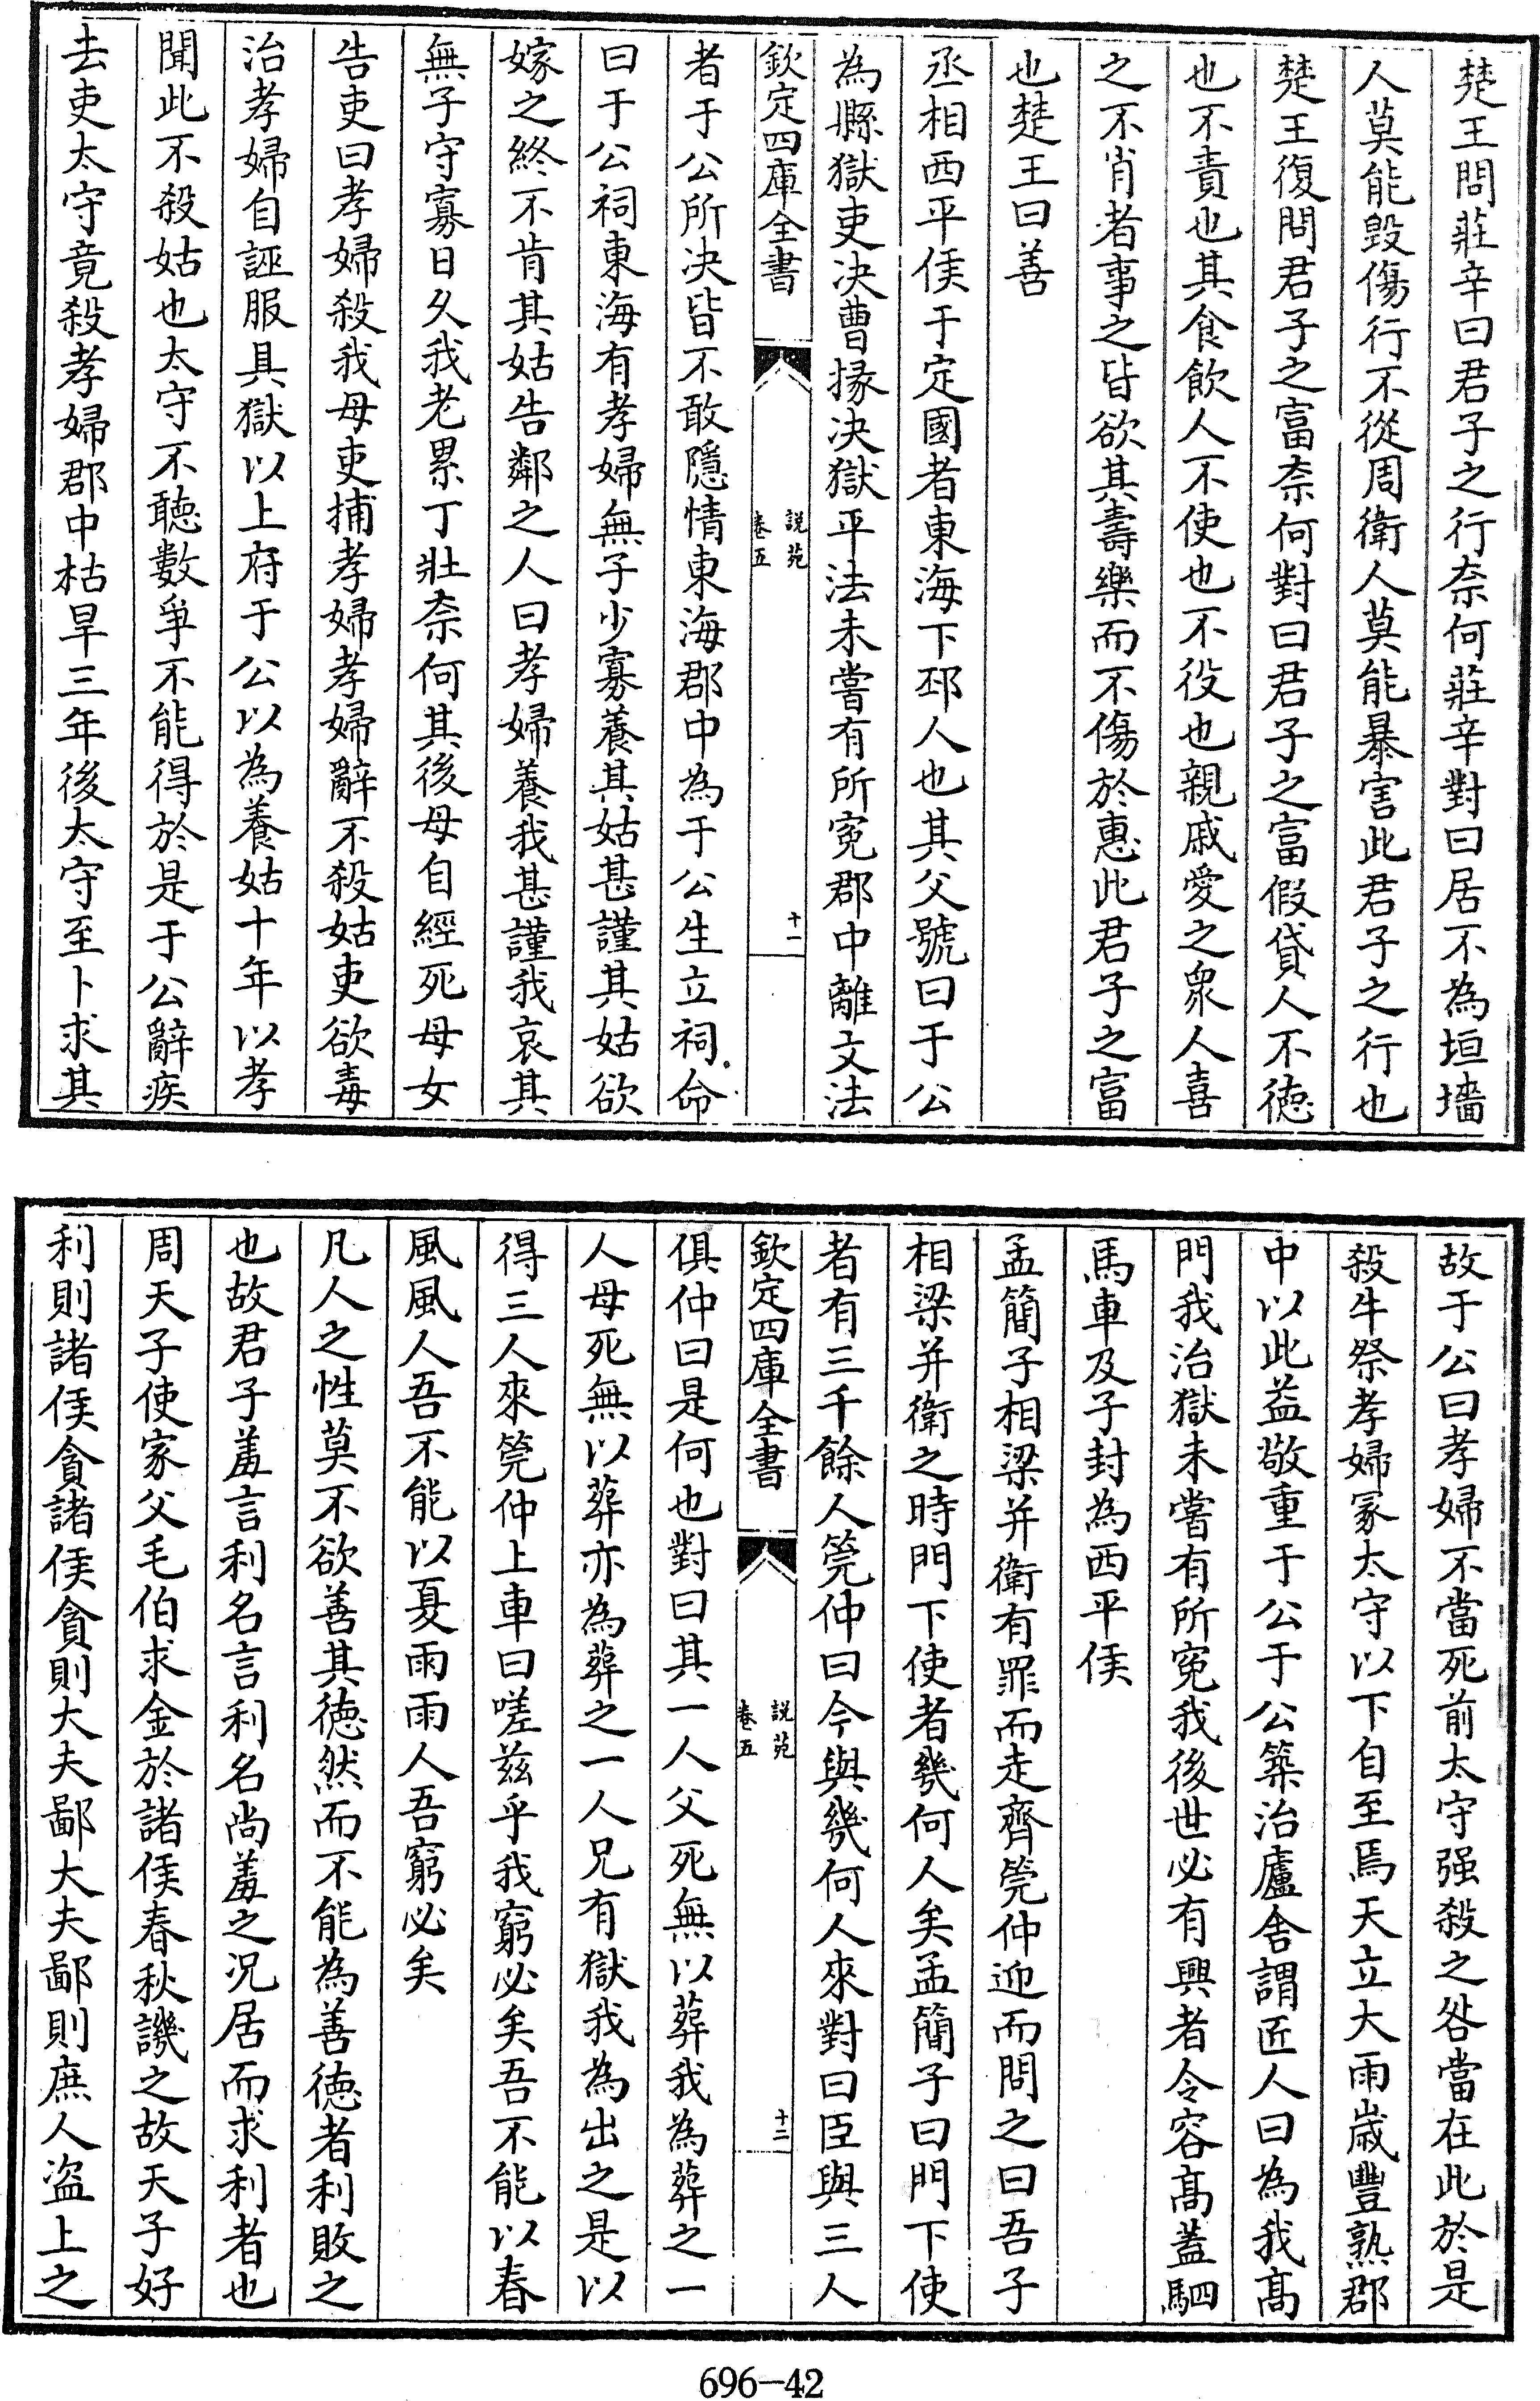 楚王問莊辛曰君子之行奈何莊辛對曰居不為垣墻
人莫能毀傷行不從周衛人莫能暴害此君子之行也
楚王復問君子之富奈何對曰君子之富假貸人不徳
也不責也其食飲人不使也不役也親戚愛之衆人喜
之不肖者事之皆欲其壽樂而不傷於惠此君子之富
也楚王曰善
丞相西平侯于定國者東海下邳人也其父號曰于公
為縣獄吏决曹掾决獄平法未嘗有所寃郡中離文法
欽定四庫全書
説苑
卷五
十一
者于公所决皆不敢隱情東海郡中為于公生立祠命
曰于公祠東海有孝婦無子少寡養其姑甚謹其姑欲
嫁之終不肯其姑告鄰之人曰孝婦養我甚謹我哀其
無子守寡日久我老累丁壯奈何其後母自經死母女
告吏曰孝婦殺我母吏捕孝婦孝婦辭不殺姑吏欲毒
治孝婦自誣服具獄以上府于公以為養姑十年以孝
聞此不殺姑也太守不聽數爭不能得於是于公辭疾
去吏太守竟殺孝婦郡中枯旱三年後太守至卜求其
故于公曰孝婦不當死前太守强殺之咎當在此於是
殺牛祭孝婦冡太守以下自至焉天立大雨歲豐熟郡
中以此益敬重于公于公築治廬舍謂匠人曰為我髙
門我治獄未嘗有所寃我後世必有興者令容髙蓋駟
馬車及子封為西平侯
孟簡子相梁并衛有罪而走齊筦仲迎而問之曰吾子
相梁并衛之時門下使者幾何人矣孟簡子曰門下使
者有三千餘人筦仲曰今與幾何人來對曰臣與三人
欽定四庫全書
説苑
卷五
十二
俱仲曰是何也對曰其一人父死無以葬我為葬之一
人母死無以葬亦為葬之一人兄有獄我為出之是以
得三人來筦仲上車曰嗟兹乎我窮必矣吾不能以春
風風人吾不能以夏雨雨人吾窮必矣
凡人之性莫不欲善其徳然而不能為善徳者利敗之
也故君子羞言利名言利名尚羞之况居而求利者也
周天子使家父毛伯求金於諸侯春秋譏之故天子好
利則諸侯貪諸侯貪則大夫鄙大夫鄙則庶人盗上之
696-42